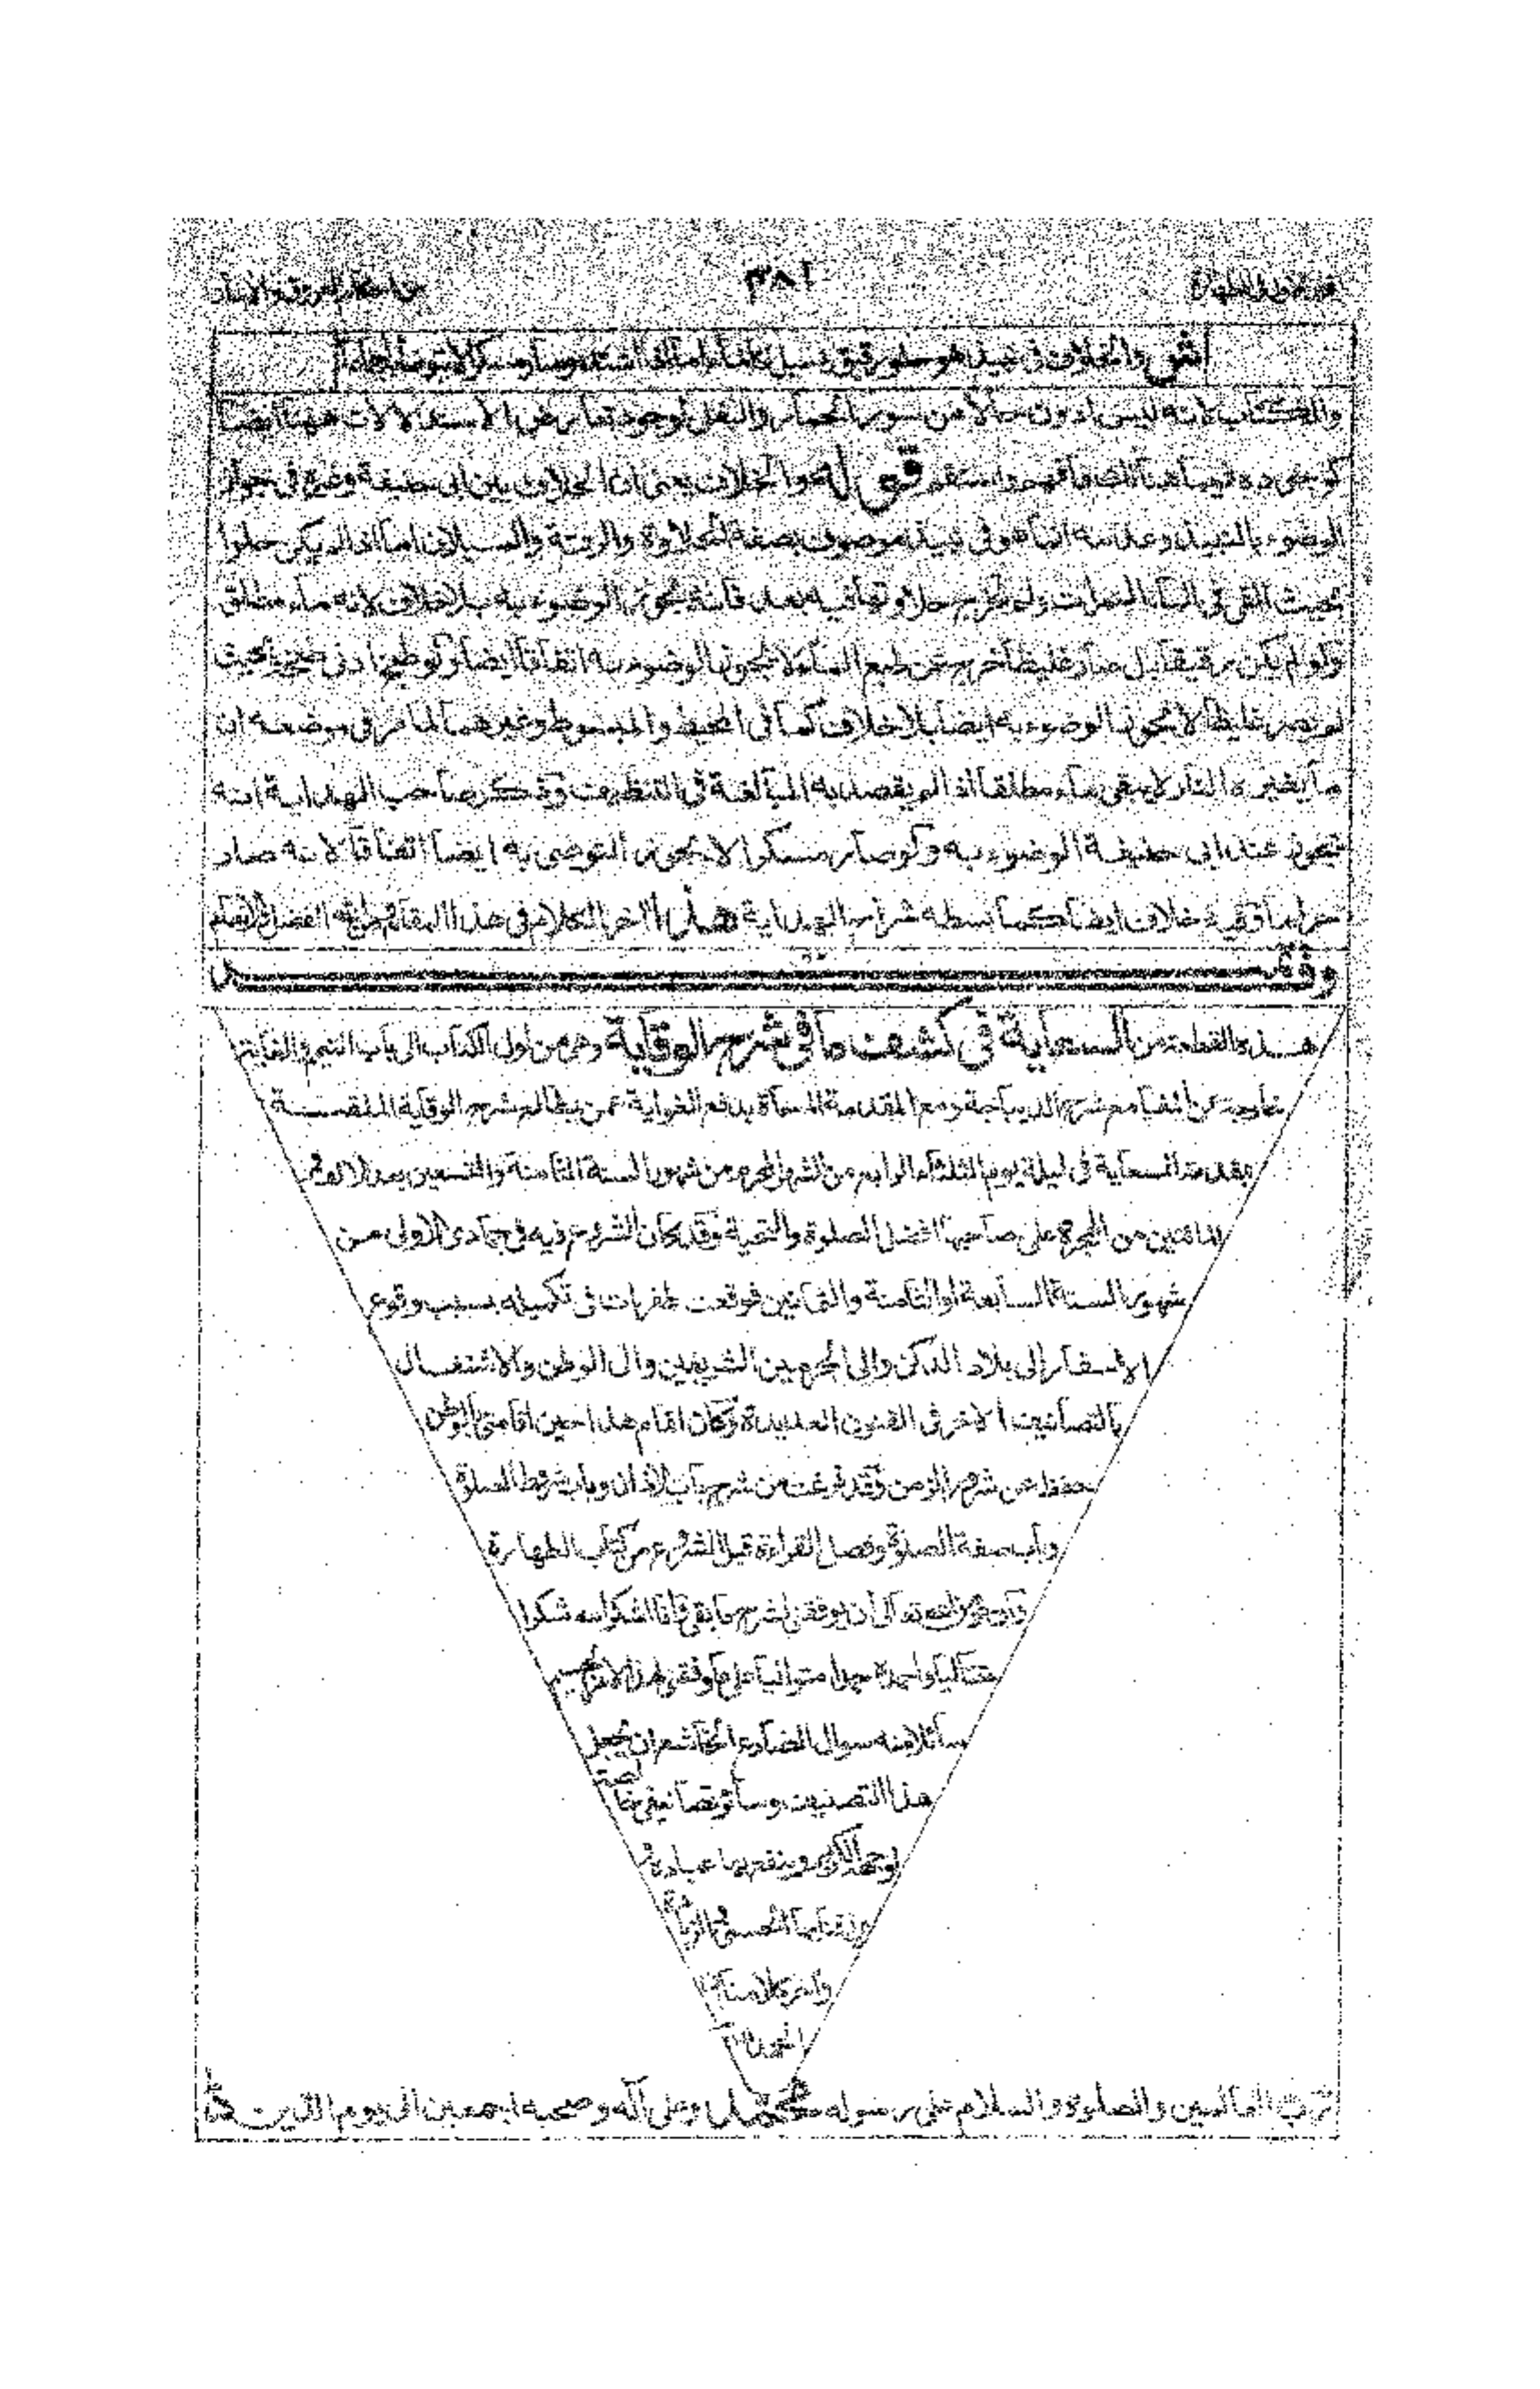 ٣٨١
والخلاف في نبيذ هو حلو رقيق يسيل كالماء اما اذا اشتد وصار مسكرا لا يتوضأ به
والكتاب لانه ليس ادون حالا من سور الحمار والبغل لوجود تعارض الاستدلالات ههنا ايضا
كوجوده فيما هنالك فافهم واستقم قوله والخلاف يعني ان الخلاف بين ابي حنيفة وغيره في جواز
الوضوء بالنبيذ وعدمه انما هو في نبيذ موصوف بصفة الحلاوة والرقة والسيلان اما اذا لم يكن حلوا
بحيث القي في الماء التمرات ولم تخرج حلاوتها فيه بعد فانه يجوز الوضوء به بلا خلاف لانه ماء مطلق
ولو لم يكن رقيقا بل صار غليظا خرج عن طبع الماء لا يجوز الوضوء به اتفاقا ايضا ولو طبخ ادنى طبخة بحيث
لم يصر غليظا لا يجوز الوضوء به ايضا بلا خلاف كما في المحيط والمبسوط وغيرهما لما مر في موضعه ان
ما يغيره النار لا يبقى ماء مطلقا اذا لم يقصد به المبالغة في التنظيف وذكر صاحب الهداية انه
يجوز عند ابي حنيفة الوضوء به ولو صار مسكرا لا يجوز التوضي به ايضا اتفاقا لانه صار
حراما وفيه خلاف ايضا كما بسطه شراح الهداية هذا اخر الكلام في هذا المقام
وقد
هذه القطعة من السعاية في كشف ما في شرح الوقاية وهي من اول الكتاب الى باب التيمم
مع شرح الديباجة ومع المقدمة المسماة بدفع الغواية عمن يطالع شرح الوقاية الملقبة
بمقدمة السعاية في ليلة يوم الثلثاء الرابع من الشهر المحرم من شهور السنة الثامنة والتسعين بعد الالف
والمائتين من الهجرة على صاحبها افضل الصلوة والتحية وقد كان الشروع فيه في جمادى الاولى من
شهور السنة السابعة او الثامنة والثمانين فوقعت فترات في تكميله بسبب وقوع
الاسفار الى بلاد الدكن والى الحرمين الشريفين وال الوطن والاشتغال
بالتصانيف الاخر في الفنون العديدة وكان اتمام هذا حين اقامتي بالوطن
حفظ عن شرور الزمن وقد فرغت من شرح باب الاذان وباب شروط الصلوة
وباب صفة الصلوة وفصل القراءة قبل الشروع من كتاب الطهارة
وارجو من الله تعالى ان يوفقني لشرح ما بقي فانا اشكر الله شكرا
متتاليا واحمده حمدا متواليا على ما وفقني لهذا الامر
سائلا منه سوال الضارع الخاشع ان يجعل
هذا التصنيف وسائر تصانيفي خالصة
لوجهه الكريم وينفع بها عباده
واخر كلامنا ان
الحمد لله
رب العالمين والصلوة والسلام على رسوله محمد وعلى آله وصحبه اجمعين الى يوم الدين